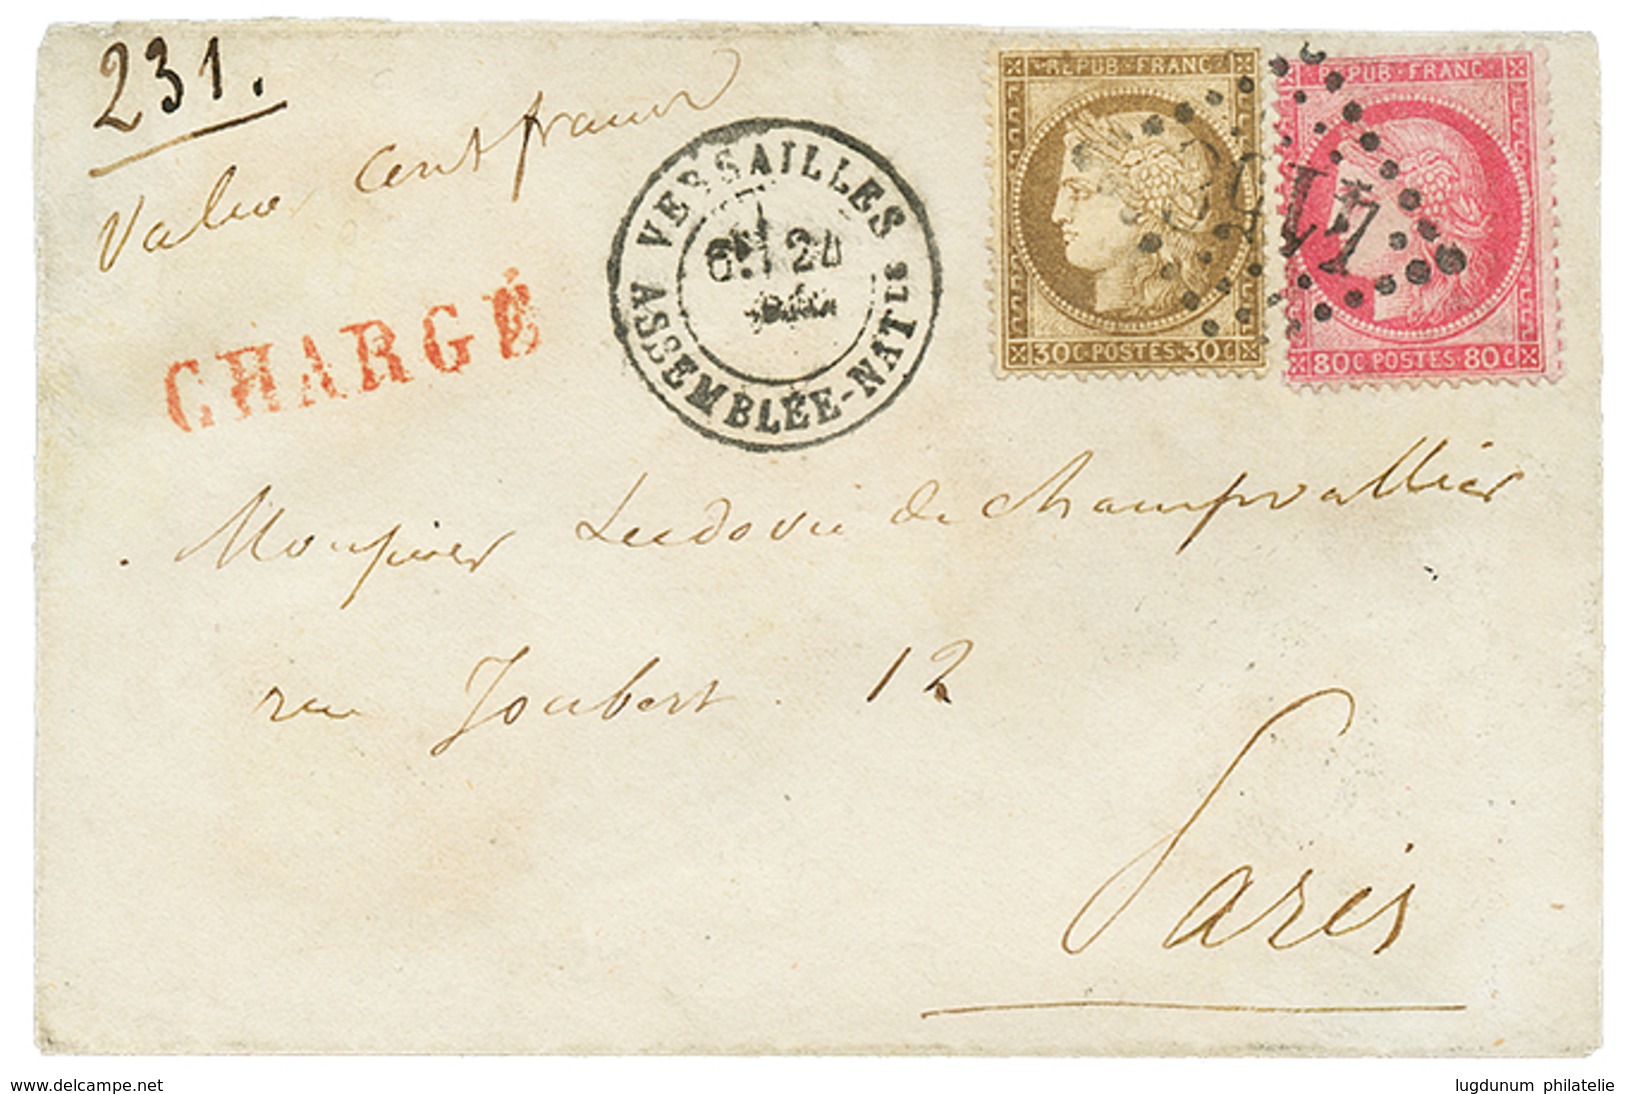 231.
Valeur cent francs
CHARGÉ
VERSAILLES
24
ASSEMBLÉE-NATLE
REPUB·FRANC
30C·POSTES·30C
REPUB·FRANC
80C·POSTES·80C
Monsieur Ludovic de Champvallier
rue Joubert. 12
Paris
delcampe.net
lugdunum philatelie